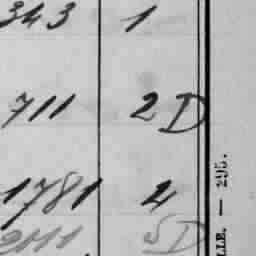 343 1
711 2 D
1781 4
2111 5 D
LLE. — 295.